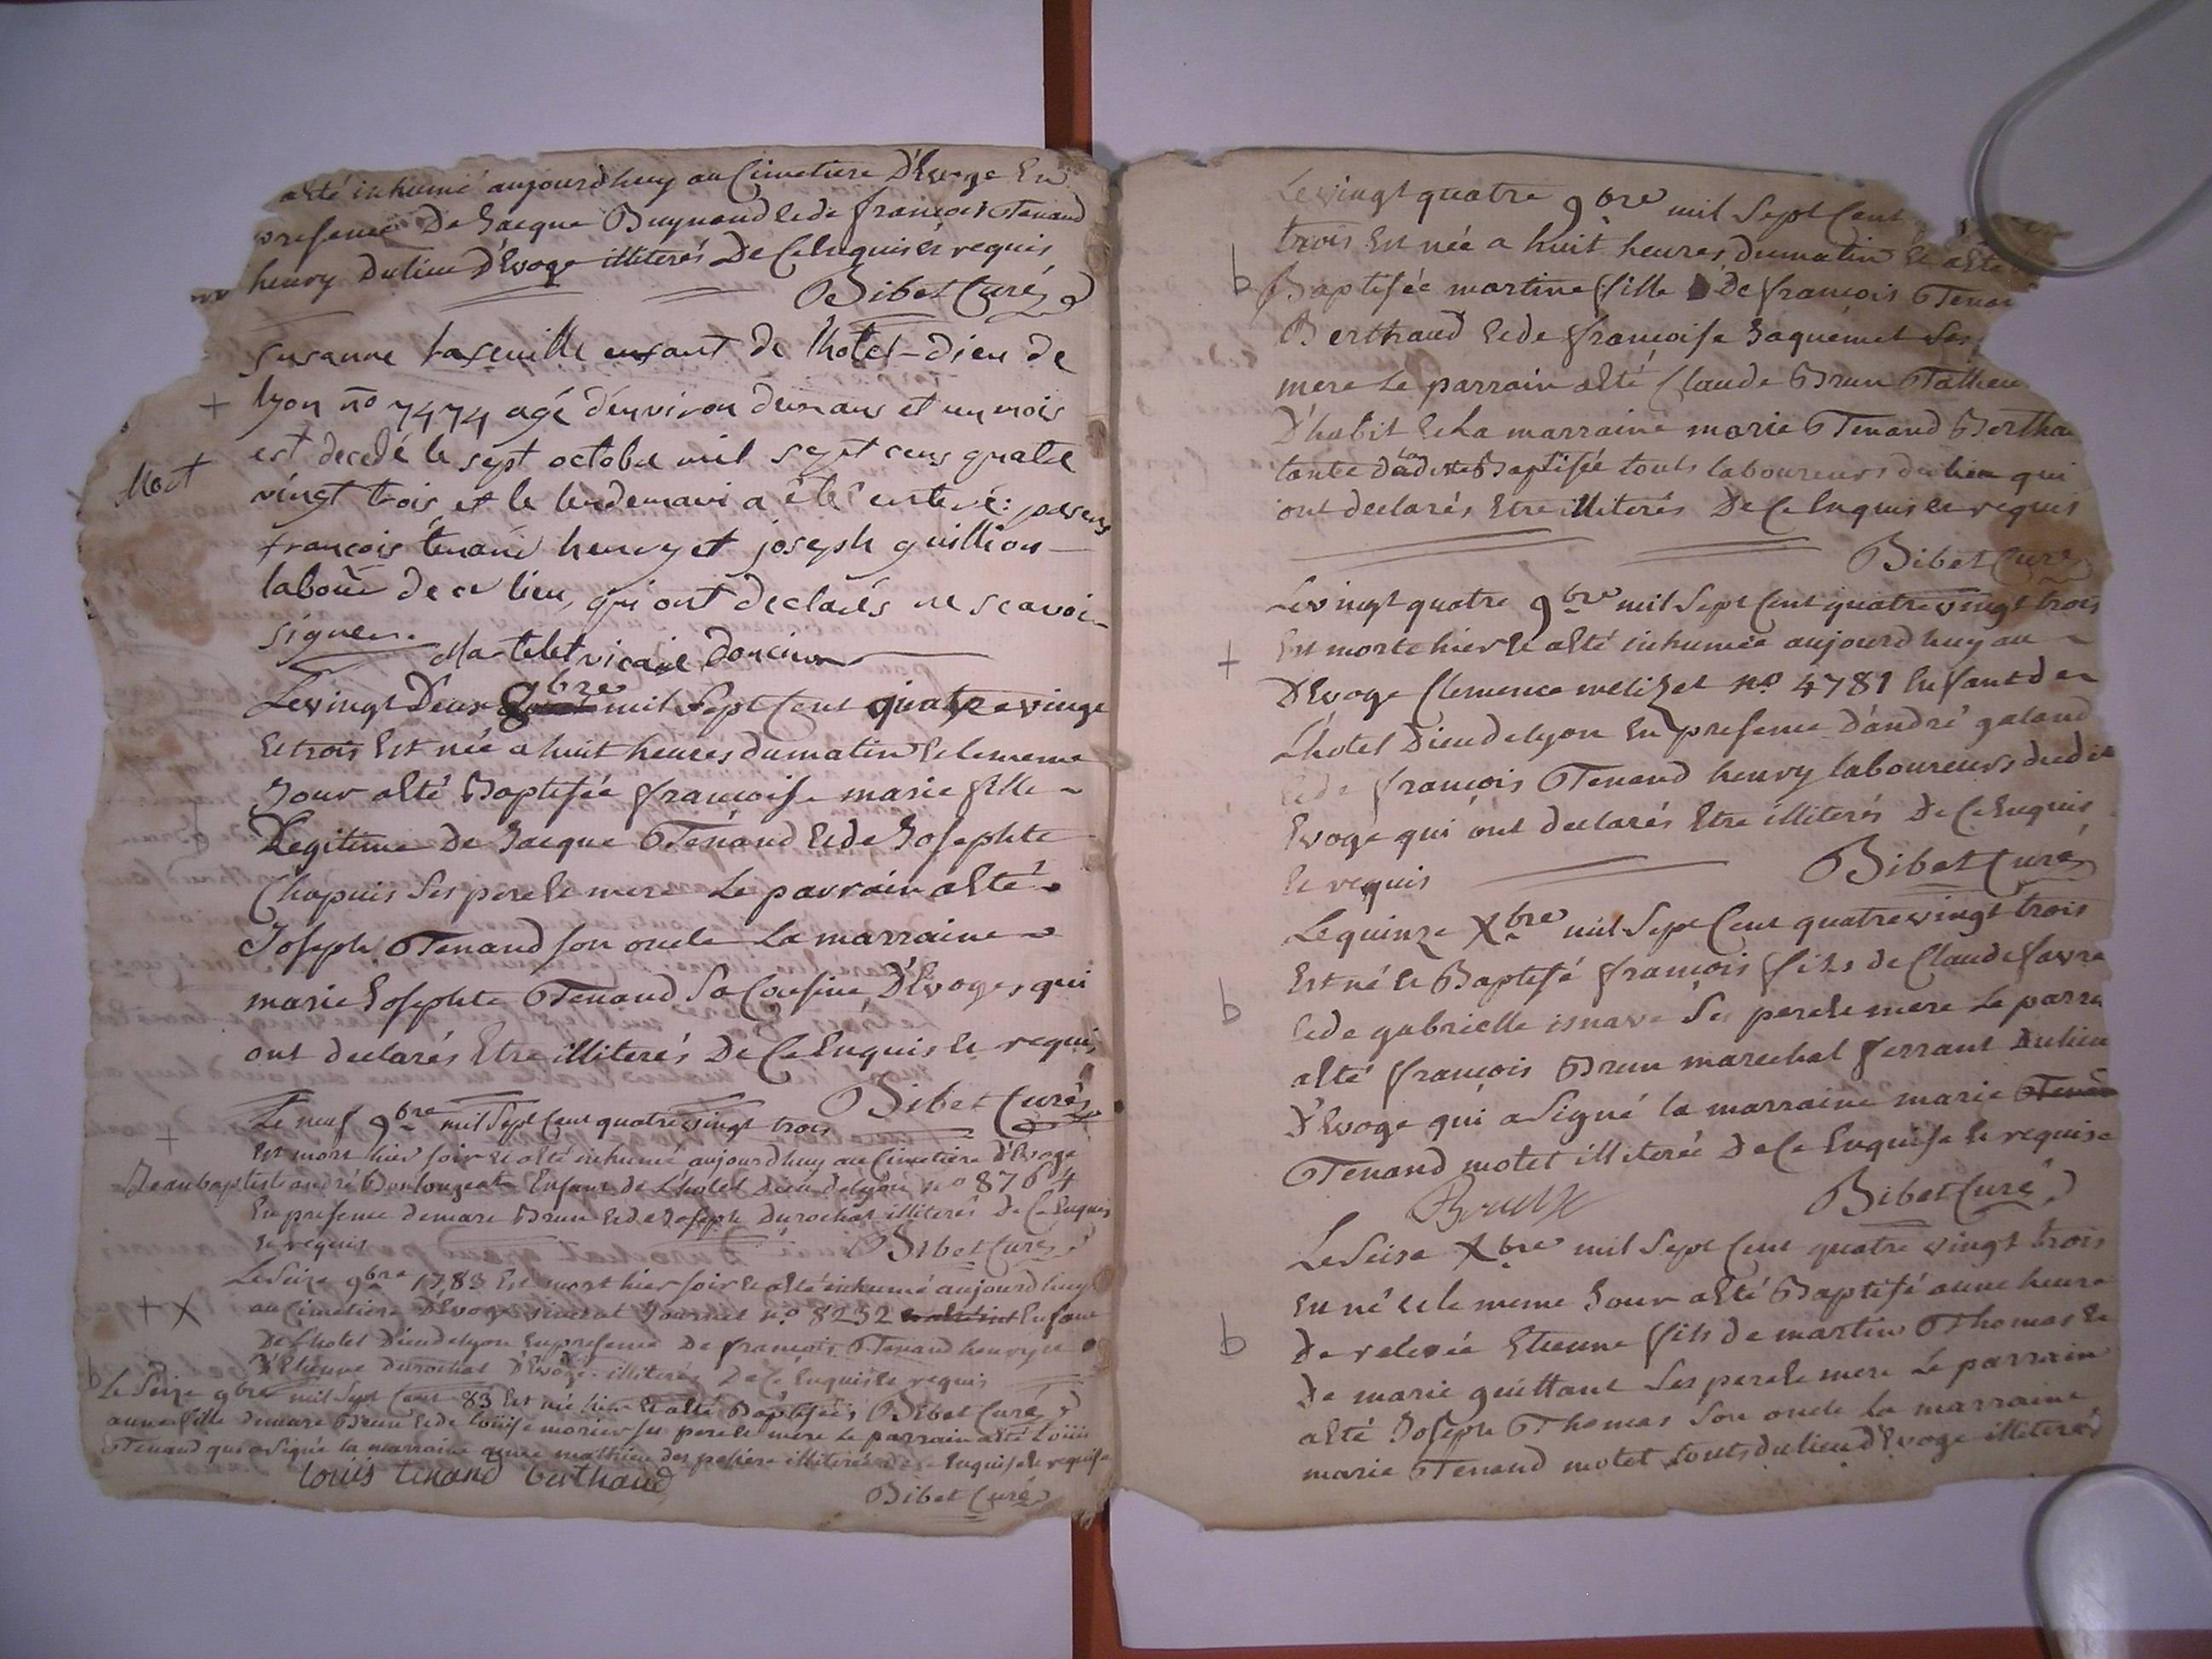 a été inhumé aujourdhuy au Cimetiere D'Evoge En
presence De Jacque Buynand et de françois Tenand
henry du lieu D'Evoge illiterés De Ce Enquis et requis
Bibet Curé
susanne enfant de l'hotel-dieu de
+ lyon no 7474 agé d'environ deux ans et un mois
Mort est decedé le sept octobre mil sept cens quatre
vingt trois et le lendemain a été enterré: presens
françois tenand henry et joseph guillion
labour de ce lieu, qui ont declarés ne scavoir
signer. Martelet vicaire
Le vingt Deux 8bre mil Sept Cent quatre vingt
et trois Est née a huit heures du matin et le meme
Jour a été Baptisée françoise marie fille
Legitime De Jacque Tenand et de Josephte
Chapuis Ses pere et mere Le parrain a été
Joseph Tenand son oncle La marraine
marie Josephte Tenand Sa Cousine D'Evoges qui
ont declarés Etre illiterés De Ce Enquis et requis
Bibet Curé
Le neuf 9bre mil Sept Cent quatre vingt trois
+ Est mort hier soir et a été inhumé aujourdhuy au Cimetiere d'Evoge
Jean baptiste andré Enfant de L'hotel Dieu de lyon no 8764
En presence de marc Brun et de Joseph Durochat illiterés De Ce Enquis
et requis Bibet Curé
Le Seize 9bre 1783 Est mort hier soir et a été inhumé aujourdhuy
+ X au Cimetiere D'Evoge vincent Journet no 8232 Enfant
De L'hotel Dieu de lyon En presence De françois Tenand henry et
D'Etienne Durochat D'Evoge illiterés De Ce Enquis et requis
b Le Seize 9bre mil Sept Cent 83 Est née hier et a été Baptisée Bibet Curé
anne fille de marc Brun et de Loüise morier ses pere et mere Le parrain a été Loüis
Tenand qui a Signé la marraine anne mathieu illiterée de ce Enquise et requise
loüis tenand berthaud
Bibet Curé
Le vingt quatre 9bre mil Sept Cent
trois Est née a huit heures du matin et a été
b Baptisée martine fille De françois Tenand
Berthaud et de françoise Jaquemet Ses
mere Le parrain a été Claude Brun Tailleur
D'habit et La marraine marie Tenand Bertha
tante De la ditte Baptisée touts laboureurs du lieu qui
ont declarés Etre illiterés De Ce Enquis et requis
Bibet Curé
Le vingt quatre 9bre mil Sept Cent quatre vingt trois
+ Est morte hier et a été inhumée aujourdhuy au
D'Evoge Clemence no 4781 Enfant de
L'hotel Dieu de lyon En presence D'andré galand
et de françois Tenand henry laboureurs dudit
Evoge qui ont declarés Etre illiterés De Ce Enquis
et requis Bibet Curé
Le quinze Xbre mil Sept Cent quatre vingt trois
Est né et Baptisé françois fils de Claude favre
b et de gabrielle Ses pere et mere Le parra
a été françois Brun marechal ferrant du lieu
D'Evoge qui a Signé la marraine marie Tenan
Tenand motet illiterée De Ce Enquise et requise
Bibet Curé
Le Seise Xbre mil Sept Cent quatre vingt trois
Est né et le meme Jour a été Baptisé a une heure
b De relevée Etienne fils de martin Thomas et
De marie guittant Ses pere et mere Le parrain
a été Joseph Thomas Son oncle la marraine
marie Tenand motet touts du lieu d'Evoge illiterés